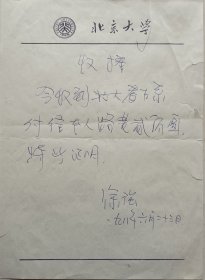 北京大学
收据
今收到北大考古系
付给本人路费贰百圆,
特此证明.
徐
一九八年六月二十三日